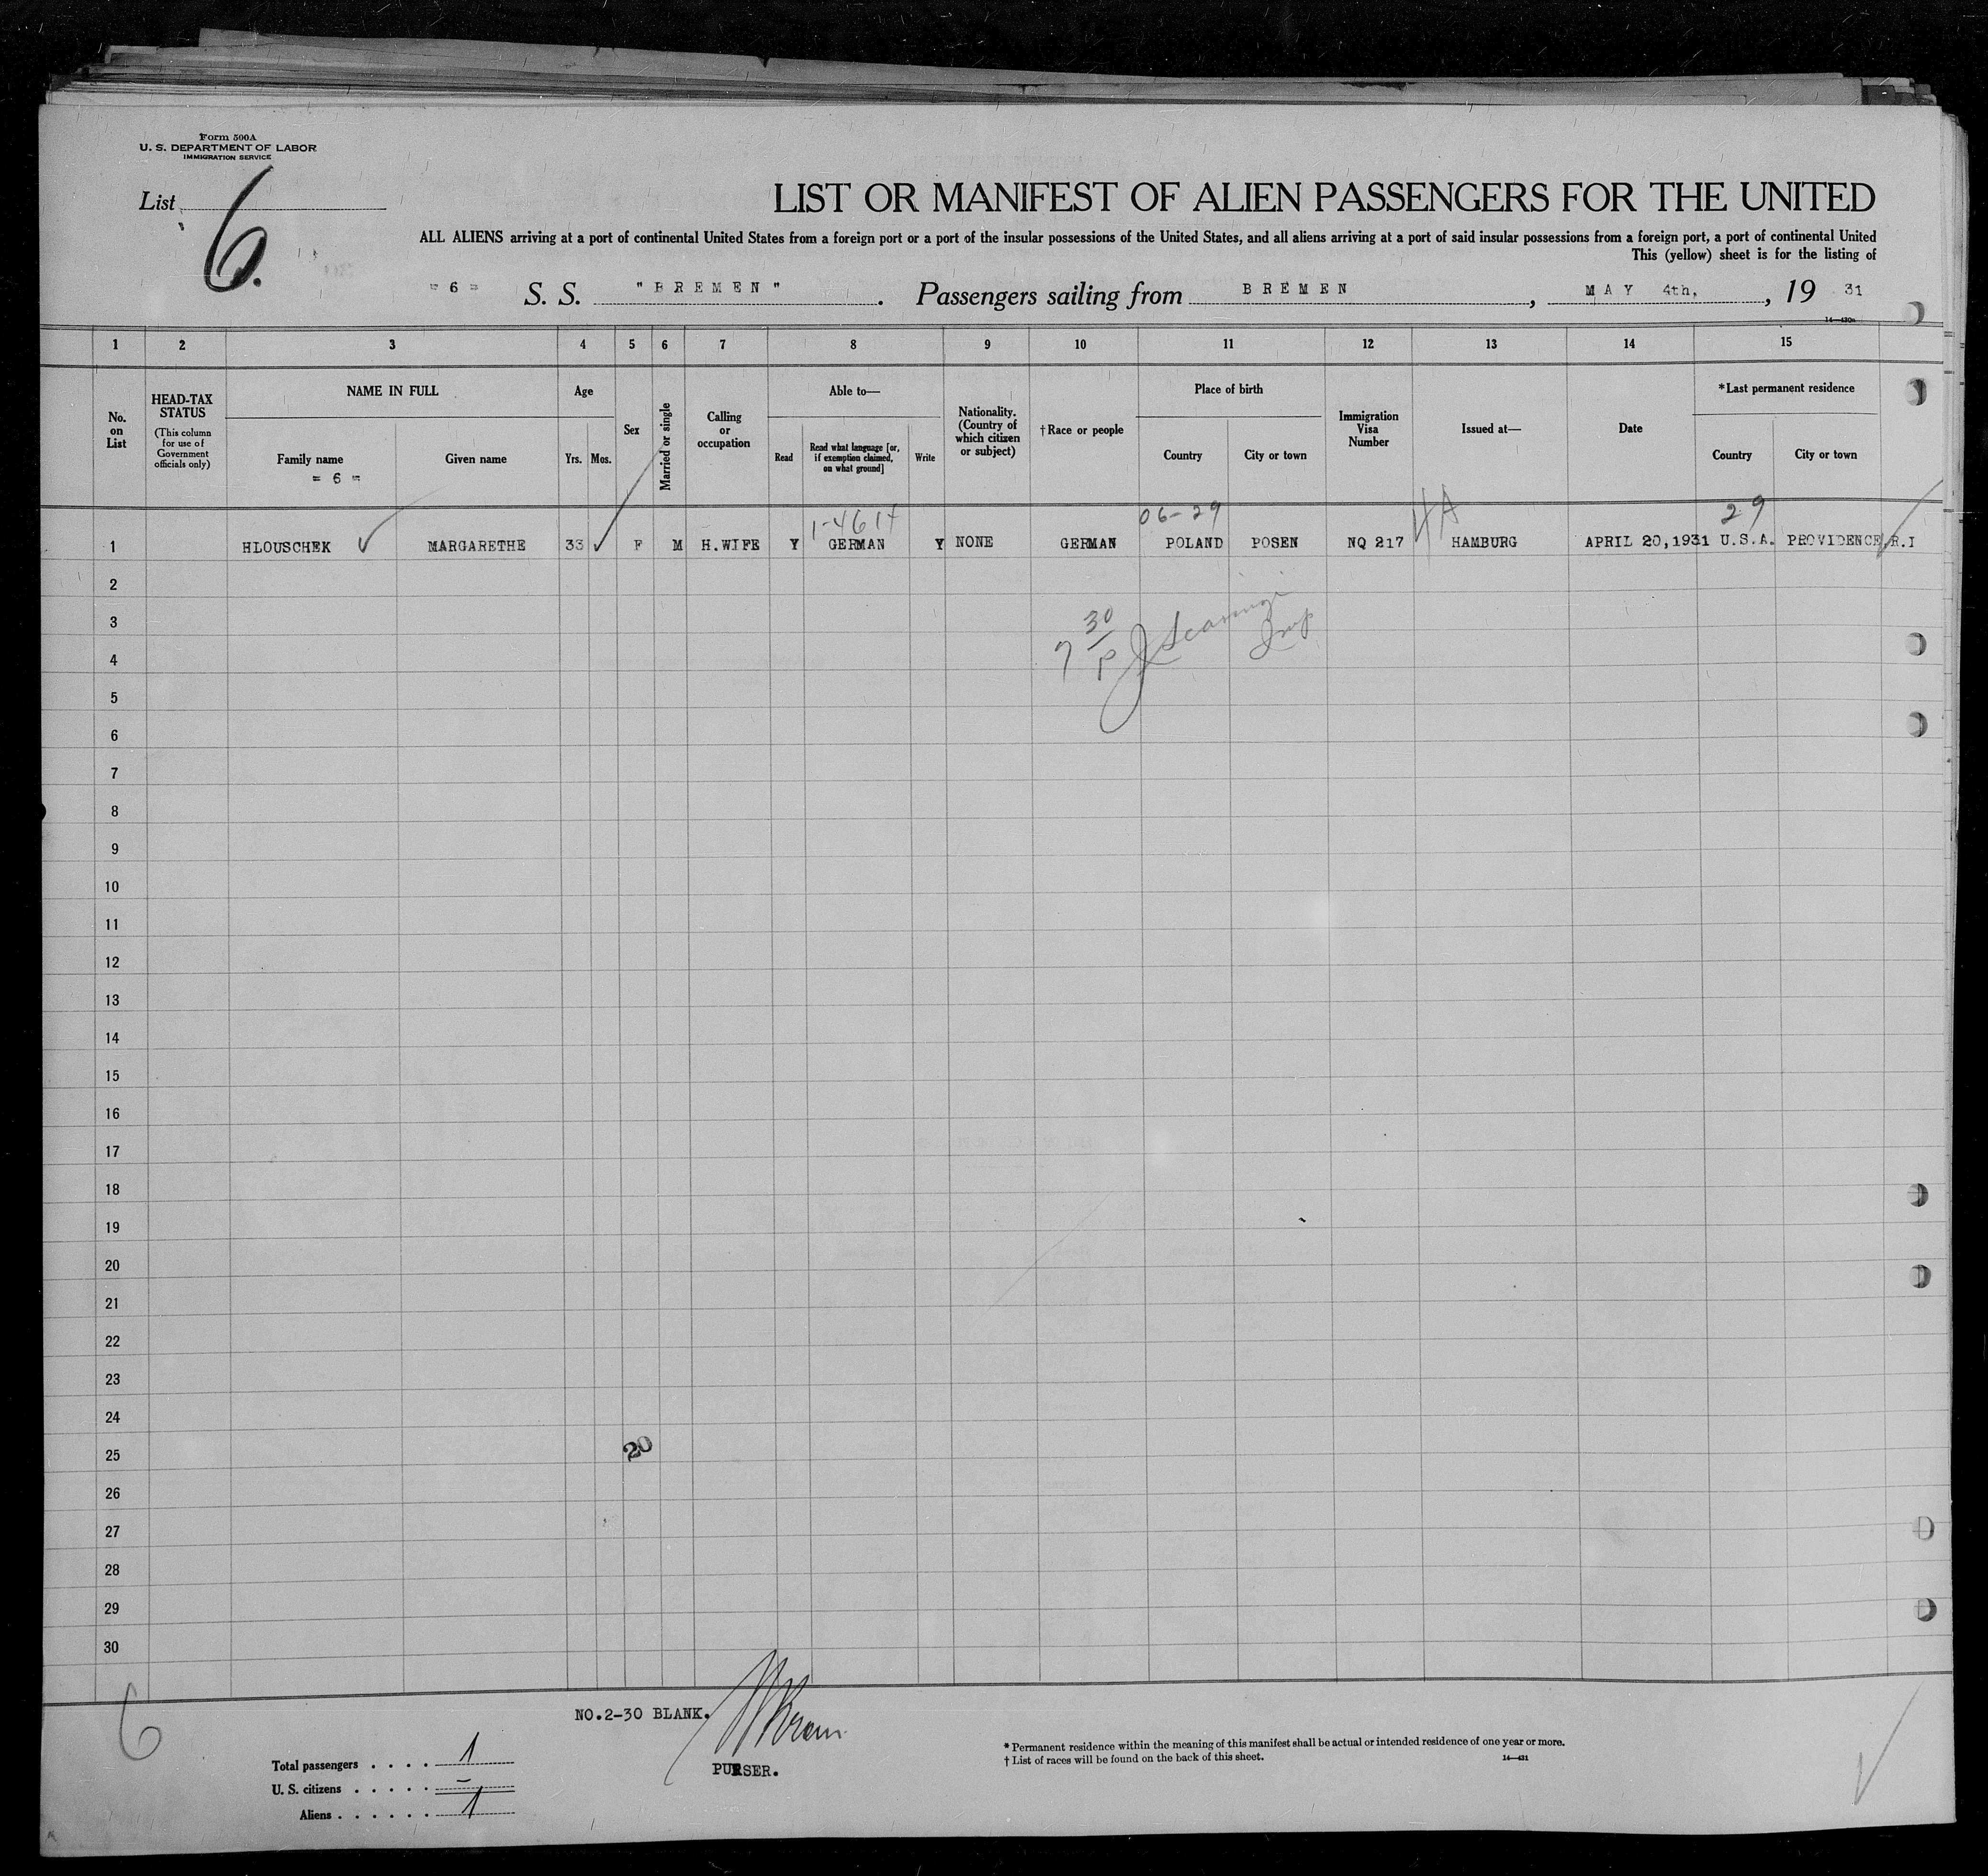 Form 500A
U. S. DEPARTMENT OF LABOR
IMMIGRATION SERVICE
List 6.
LIST OR MANIFEST OF ALIEN PASSENGERS FOR THE UNITED
ALL ALIENS arriving at a port of continental United States from a foreign port or a port of the insular possessions of the United States, and all aliens arriving at a port of said insular possessions from a foreign port, a port of continental United
This (yellow) sheet is for the listing of
= 6 = S. S. "BREMEN". Passengers sailing from BREMEN, MAY 4th, , 19 31
1 2 3 4 5 6 7 8 9 10 11 12 13 14 15
No. on List
HEAD-TAX STATUS
(This column for use of Government officials only)
NAME IN FULL
Family name
= 6 =
Given name
Age
Yrs. Mos.
Sex
Married or single
Calling or occupation
Able to—
Read
Read what language [or, if exemption claimed, on what ground]
Write
Nationality. (Country of which citizen or subject)
†Race or people
Place of birth
Country
City or town
Immigration Visa Number
Issued at—
Date
*Last permanent residence
Country
City or town
06-29
29
1 HLOUSCHEK MARGARETHE 33 F M H.WIFE Y GERMAN Y NONE GERMAN POLAND POSEN NQ 217 HAMBURG APRIL 20,1931 U.S.A. PROVIDENCE,R.I
2
3
7 30
P
4
5
6
7
8
9
10
11
12
13
14
15
16
17
18
19
20
21
22
23
24
25
20
26
27
28
29
30
6
NO.2-30 BLANK.
PURSER.
Total passengers . . . . 1
U. S. citizens . . . . . –
Aliens . . . . . . 1
* Permanent residence within the meaning of this manifest shall be actual or intended residence of one year or more.
† List of races will be found on the back of this sheet.
14—431